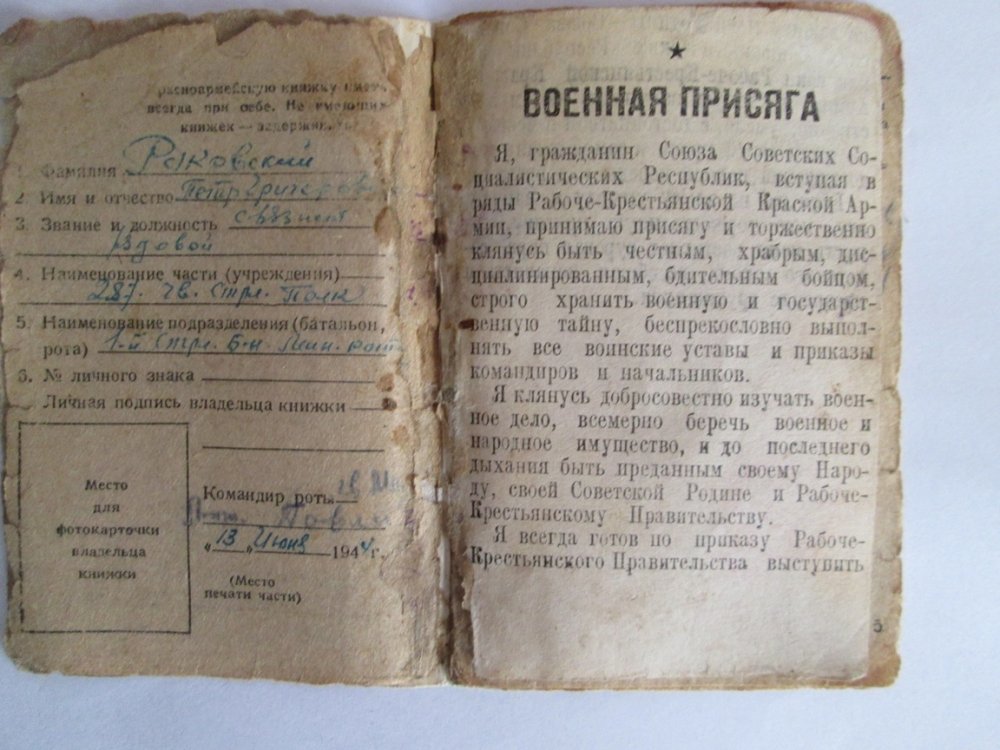 расноармейскую книжку иметь
всегда при себе. Не имеющих
книжек — задержив
1. Фамилия Раковский
2. Имя и отчество Петр
3. Звание и должность связной
Ездовой
4. Наименование части (учреждения)
287. гв. стр. Полк
5. Наименование подразделения (батальон,
рота) 1-й стр. б-н Мин. рота
6. № личного знака
Личная подпись владельца книжки
Место
для
фотокарточки
владельца
книжки
Командир роты гв.
„13 „ Июня 1944 г.
(Место
печати части)
★
ВОЕННАЯ ПРИСЯГА
Я, гражданин Союза Советских Со-
циалистических Республик, вступая в
ряды Рабоче-Крестьянской Красной Ар-
мии, принимаю присягу и торжественно
клянусь быть честным, храбрым, дис-
циплинированным, бдительным бойцом,
строго хранить военную и государст-
венную тайну, беспрекословно выпол-
нять все воинские уставы и приказы
командиров и начальников.
Я клянусь добросовестно изучать воен-
ное дело, всемерно беречь военное и
народное имущество, и до последнего
дыхания быть преданным своему Наро-
ду, своей Советской Родине и Рабоче-
Крестьянскому Правительству.
Я всегда готов по приказу Рабоче-
Крестьянского Правительства выступить
3